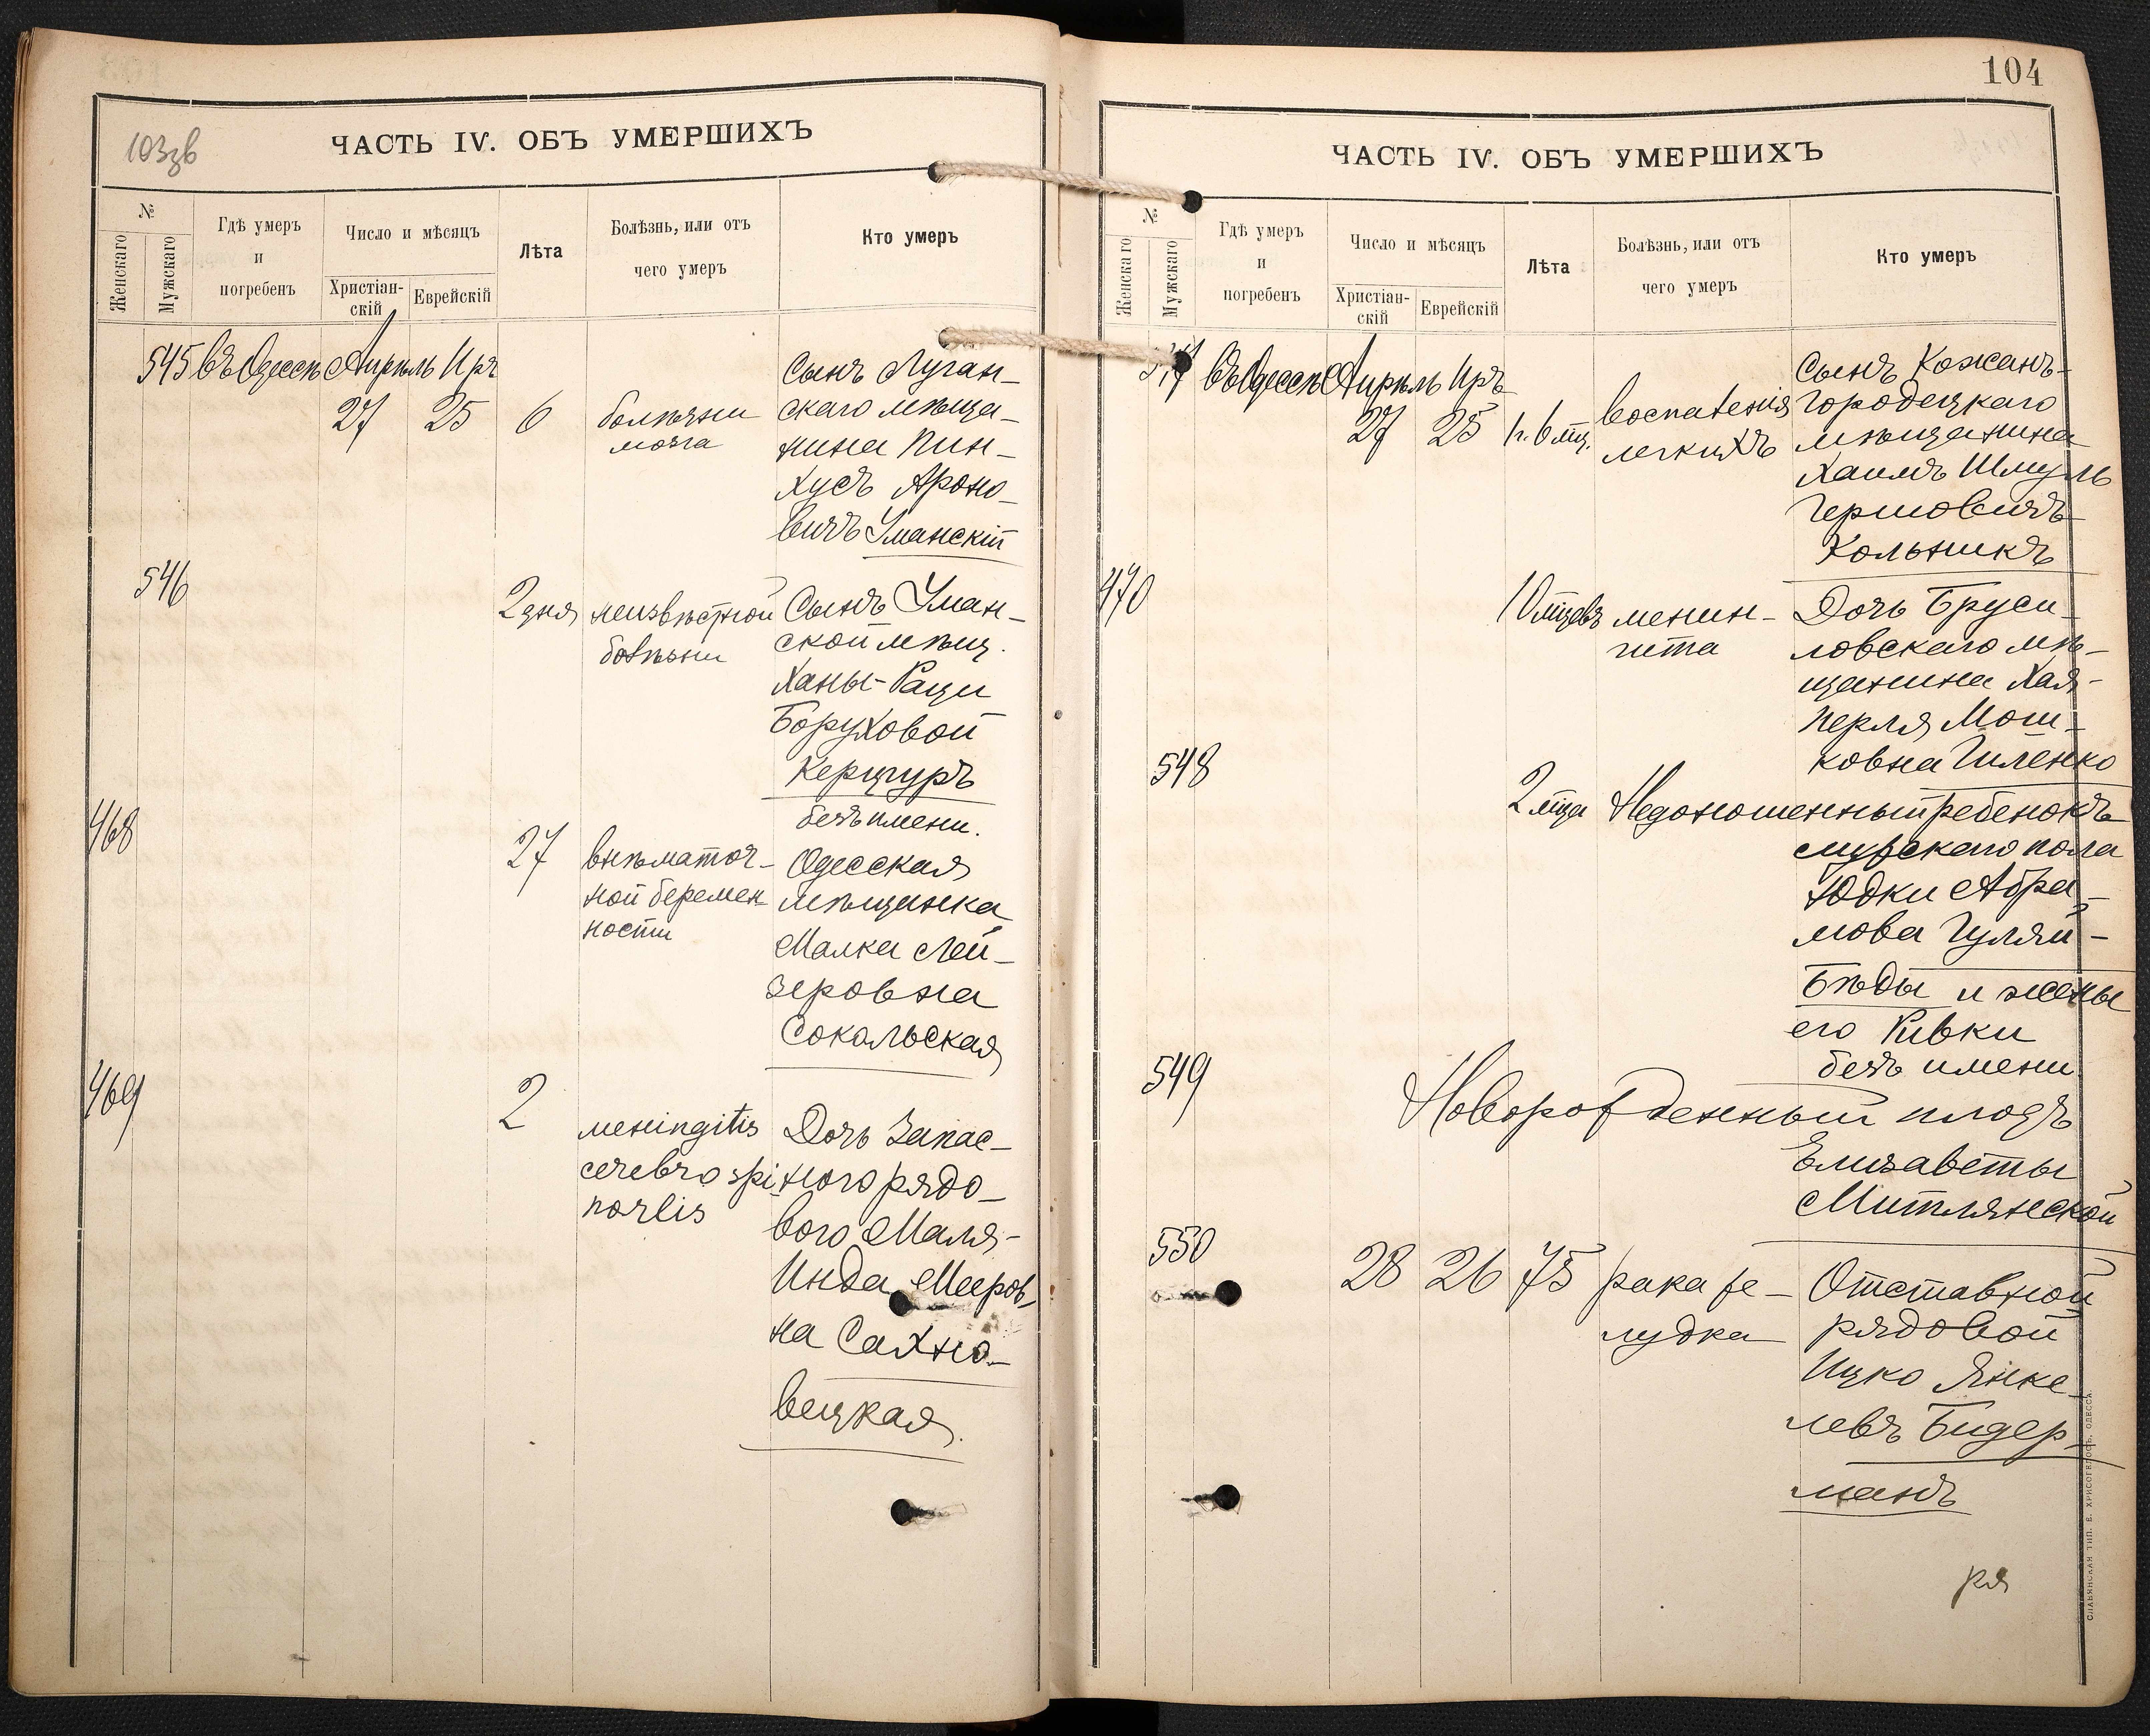 103зв
ЧАСТЬ IV. ОБЪ УМЕРШИХЪ
№
Женскаго
Мужскаго
Гдѣ умеръ
и
погребенъ
Число и мѣсяцъ
Христіан-
скій
Еврейскій
Лѣта
Болѣзнь, или отъ
чего умеръ
Кто умеръ
545 Въ Одессѣ Апрѣль Иръ
27 25 6 болѣзни
мозга
Сынъ Луган-
скаго мѣща-
нина Пин-
хусъ Ароно-
вичъ Уманскій
546
2 дня неизвѣстной
болѣзни
Сынъ Уман-
ской мѣщ.
Ханы-Раци
Боруховой
Керцгуръ
безъ имени.
468
27 внѣматоч-
ной беремен-
ности
Одесская
мѣщанка
Малка Лей-
зеровна
Сокальская
469
2
meningitis
cerebro spi-
nalis
Дочь Запас-
ного рядо-
вого Маля-
Инда Мееров-
на Сахно-
вецкая.
104
ЧАСТЬ IV. ОБЪ УМЕРШИХЪ
№
Женскаго
Мужскаго
Гдѣ умеръ
и
погребенъ
Число и мѣсяцъ
Христіан-
скій
Еврейскій
Лѣта
Болѣзнь, или отъ
чего умеръ
Кто умеръ
547 Въ Одессѣ Апрѣль Иръ
27 25 1г. 6 мц.
воспаленія
легкихъ
Сынъ Кожанъ-
Городецкаго
мѣщанина
Хаимъ Шмуль
Гершовичъ
Кольникъ
470
10 мцевъ менин-
гита
Дочь Бруси-
ловскаго мѣ-
щанина Хая-
Перля Мош-
ковна Гиленко
548
2 мца Недоношенный ребенокъ
мужскаго пола
Юдки Абра-
мова Гуляй-
Бѣды и жены
его Ривки
безъ имени.
549
Новорожденный плодъ
Елизаветы
Митлянской
550
28 26 75 рака же-
лудка
Отставной
рядовой
Ицко Янке-
левъ Бидер-
манъ
ря
СЛАВЯНСКАЯ ТИП. Е. ХРИСОГЕЛОСЪ, ОДЕССА.